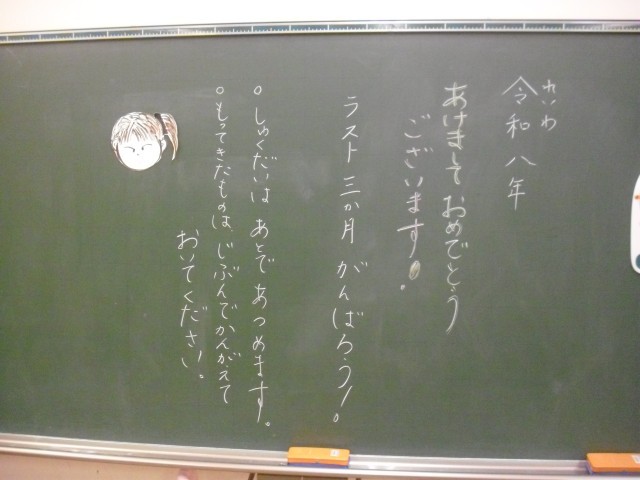 令和八年
れいわ
あけましておめでとう
ございます!
ラスト三か月 がんばろう!
○しゅくだいは あとで あつめます。
○もってきたものは、じぶんでかんがえて
おいてください。